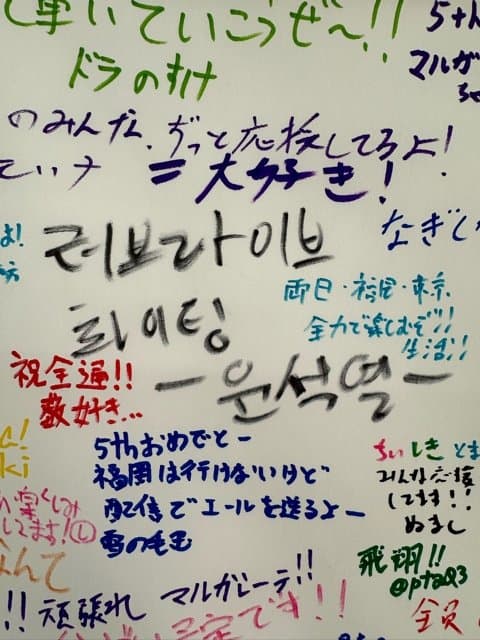 輝いていこうぜ〜!!
ドラのすけ
5th
マルガ
ちゃ
のみんな、ずっと応援してるよ!
=大好き!
よ!
러브라이브
화이팅
-윤석열-
なぎしゃ
両日・福岡・東京
全力で楽しむぞ!!
生活!!
祝全通!!
数好き...
5thおめでとー
福岡は行けないけど
配信でエールを送るよー
雪の毛玉
ki
楽しみ
してます!
なんて
ちぃしき とま
みんな応援
してます!!
ぬまし
飛翔!!
@ptaQ3
!! 頑張れ マルガレーテ!!
です!!
全員